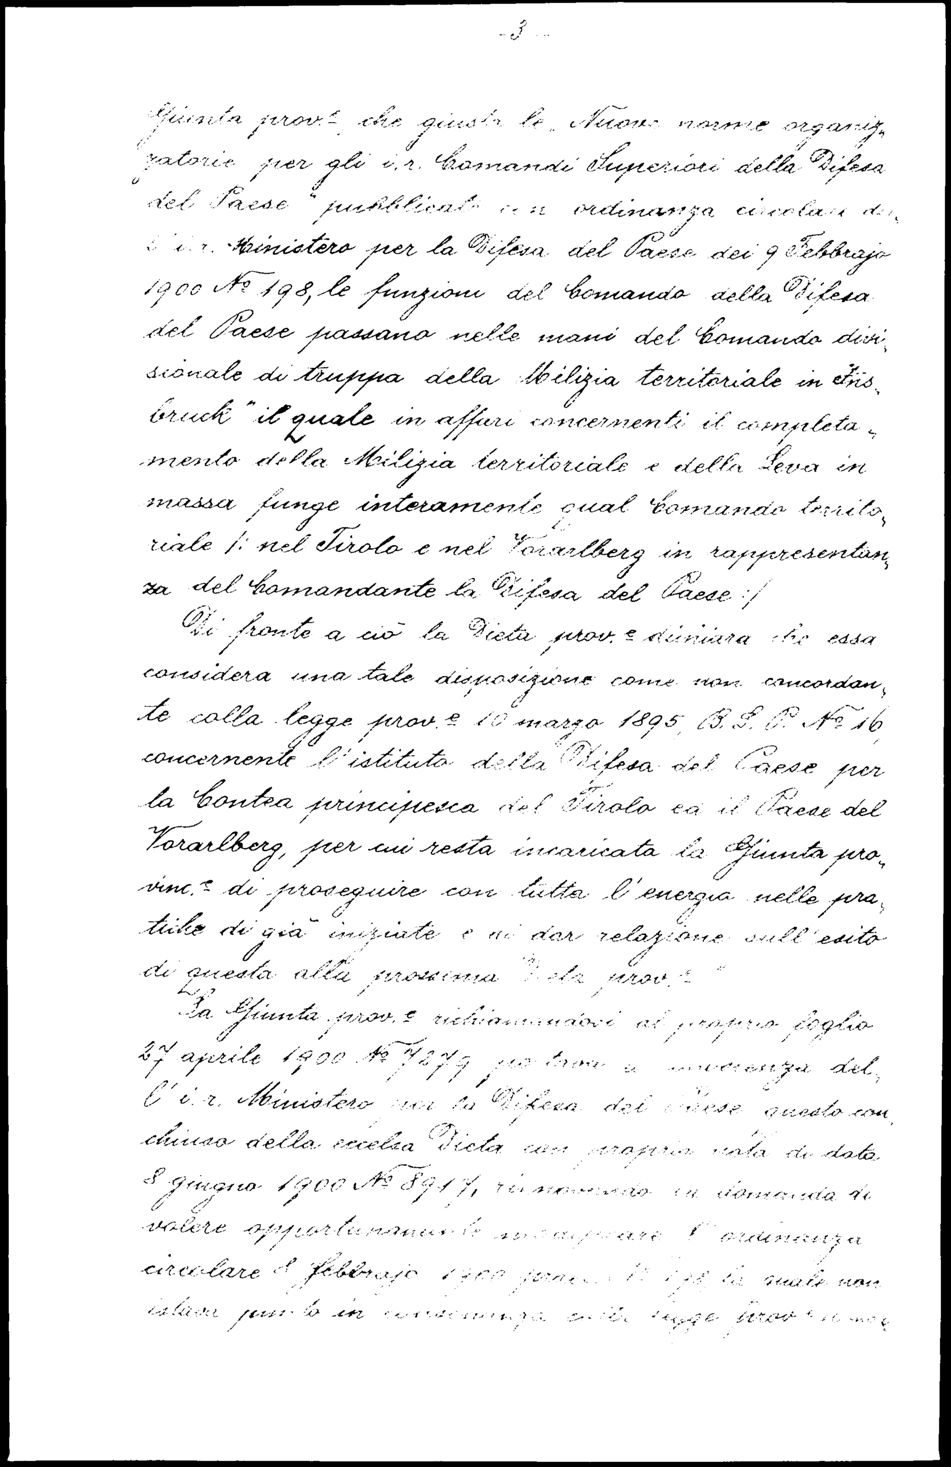 - 3 -
Giunta prov.e che giusta le „Nuove norme organiz„
zatorie per gli i. r. Comandi Superiori della Difesa
del Paese" pubblicate con ordinanza circolare del„
l' i. r. Ministero per la Difesa del Paese dei 9 Febbrajo
1900 No 198, le funzioni del Comando della Difesa
del Paese passano nelle mani del Comando divi„
sionale di truppa della Milizia territoriale in Inns„
bruck" il quale in affari concernenti il completa„
mento della Milizia territoriale e della Leva in
massa funge interamente qual Comando territo„
riale /: nel Tirolo e nel Vorarlberg in rappresentan„
za del Comandante la Difesa del Paese :/
Di fronte a ciò la Dieta prov.e dichiara che essa
considera una tale disposizione come non concordan„
te colla legge prov.e 10 marzo 1895, B. L. P. No 16,
concernente l'istituto della Difesa del Paese per
la Contea principesca del Tirolo ed il Paese del
Vorarlberg, per cui resta incaricata la Giunta pro„
vinc.e di proseguire con tutta l'energia nelle pra„
tiche di già iniziate e di dar relazione sull'esito
di questa alla prossima Dieta prov.e"
La Giunta prov.e richiamandosi al proprio foglio
27 aprile 1900 No 7279 portava a conoscenza del„
l' i. r. Ministero per la Difesa del Paese questo con„
chiuso della eccelsa Dieta con propria nota di data
8 giugno 1900 No 8917, rinnovando la domanda di
volere opportunamente modificare l'ordinanza
circolare febbrajo 1900 la quale non
stava punto in consonanza colla legge prov.